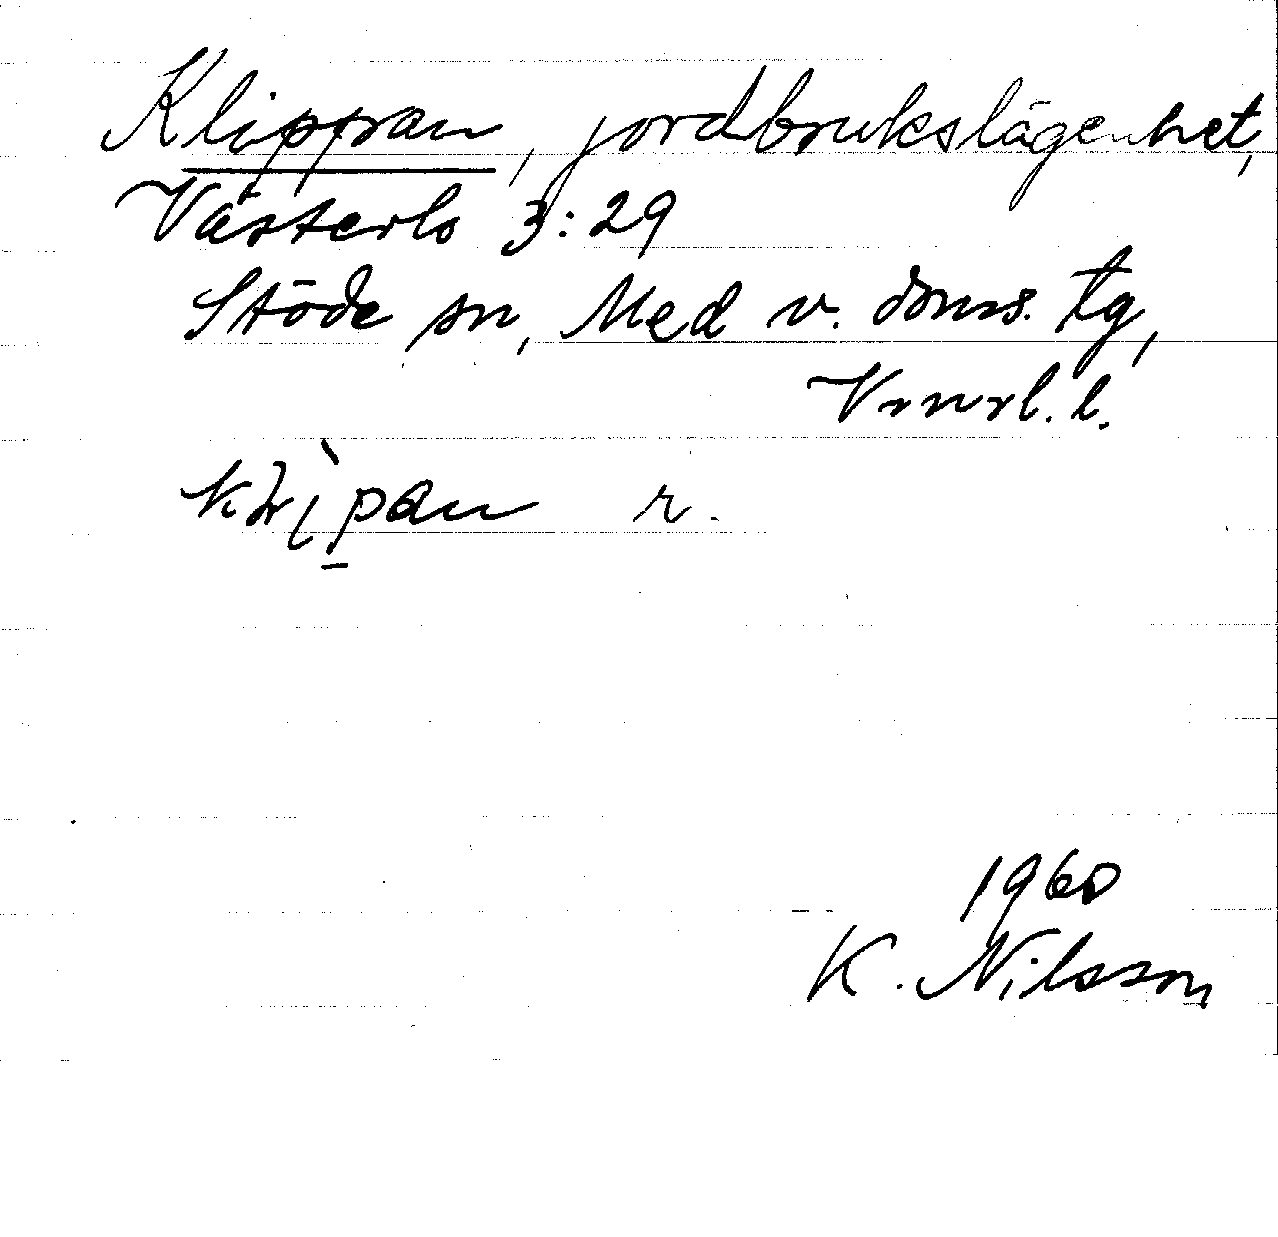 Klippan, jordbrukslägenhet,
Västerlo 3:29
Stöde sn, Med v. doms. tg,
Vrnrl. l.
pan r.
1960
K. Nilsson